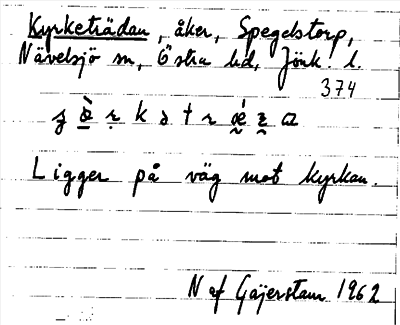 Kyrketrädan, åker, Spegelstorp,
Nävelsjö sn, Östra hd, Jönk. l.
374
Ligger på väg mot kyrkan.
N af Gajerstam 1962